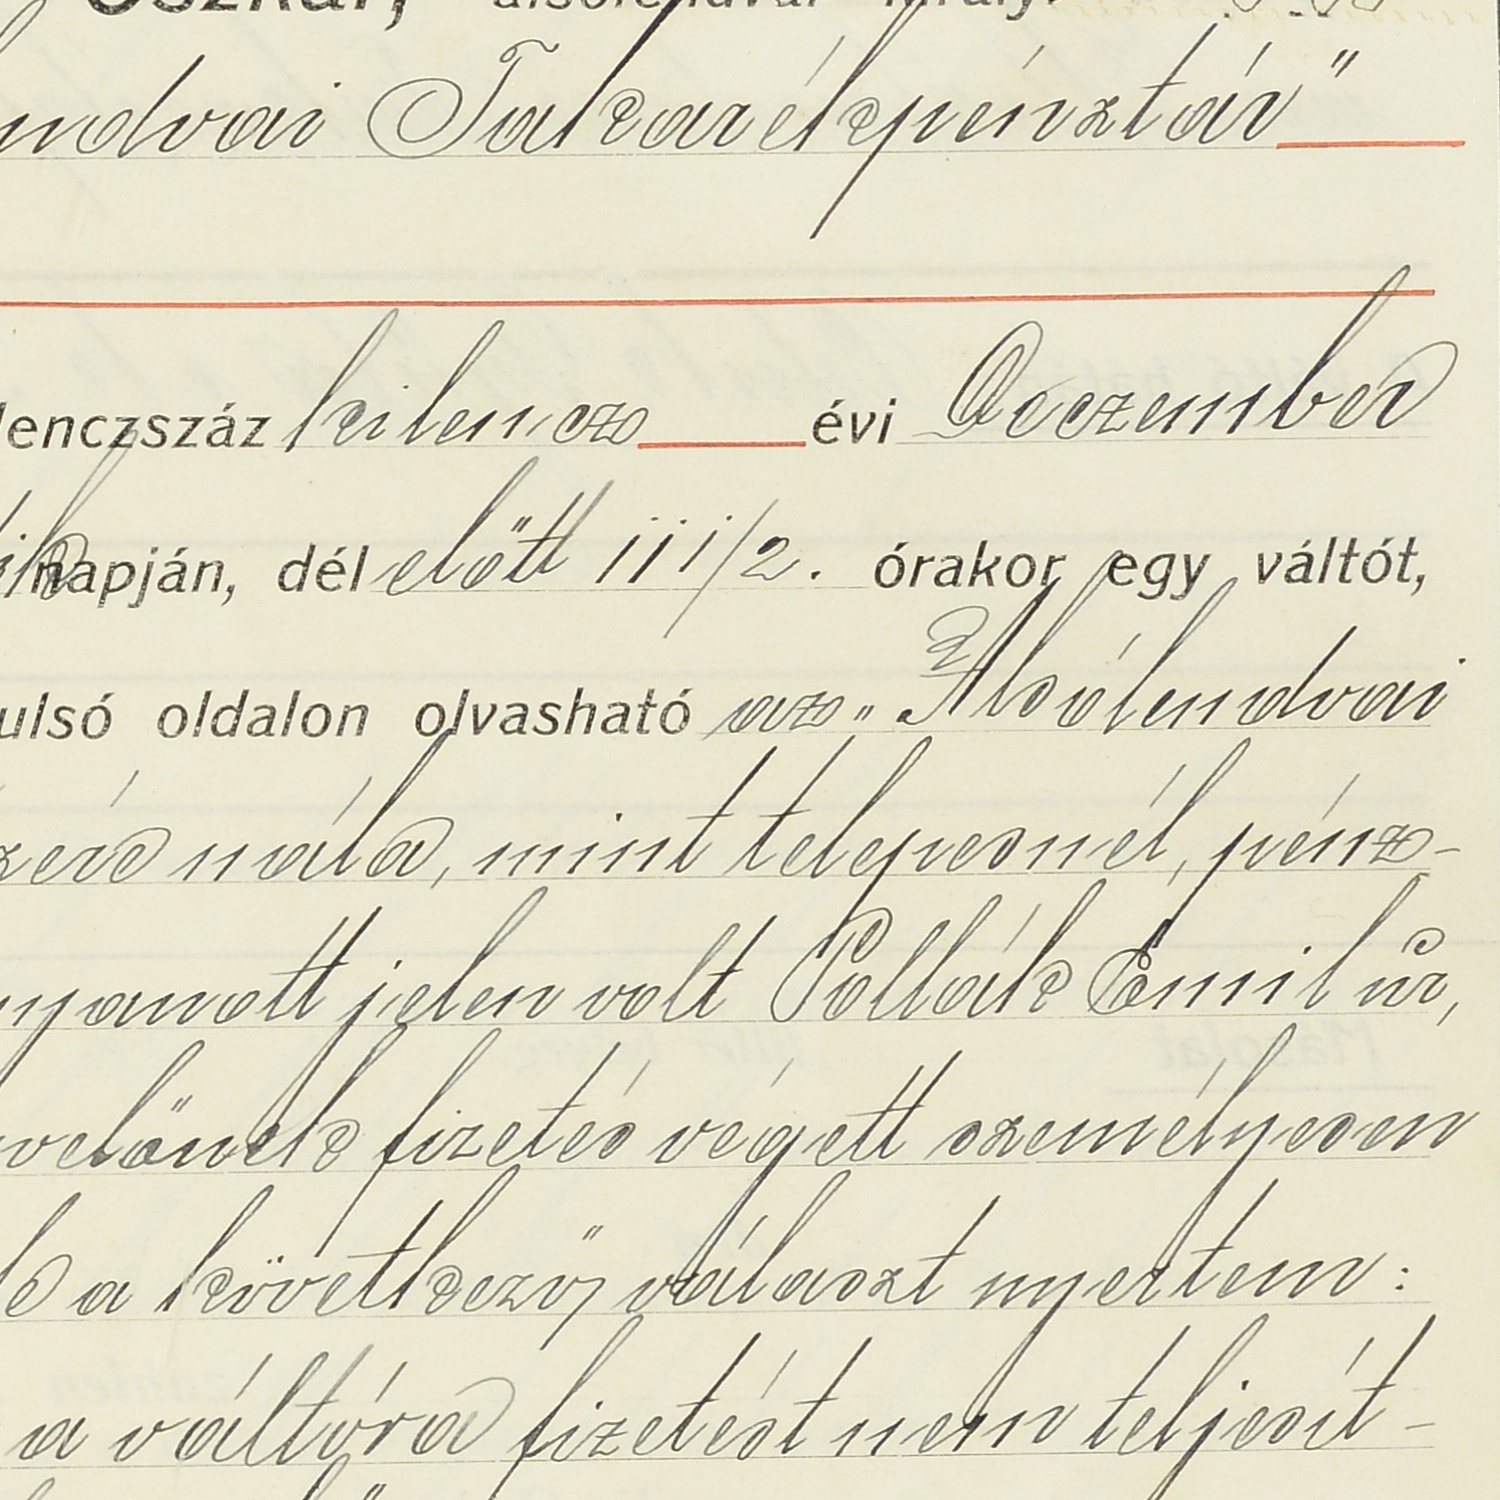 Oszkár, alsólendvai királyi
ndvai Takarékpénztár"
lenczszáz kilencz évi Deczember
napján, dél előtt 11 1/2. órakor egy váltót,
ulsó oldalon olvasható az „Alsólendvai
nála, mint telepesnél, pénz-
nyanott jelen volt Pollák Emil úr,
velőnek fizetés végett személyesen
a következő választ nyertem:
a váltóra fizetést nem teljesít-